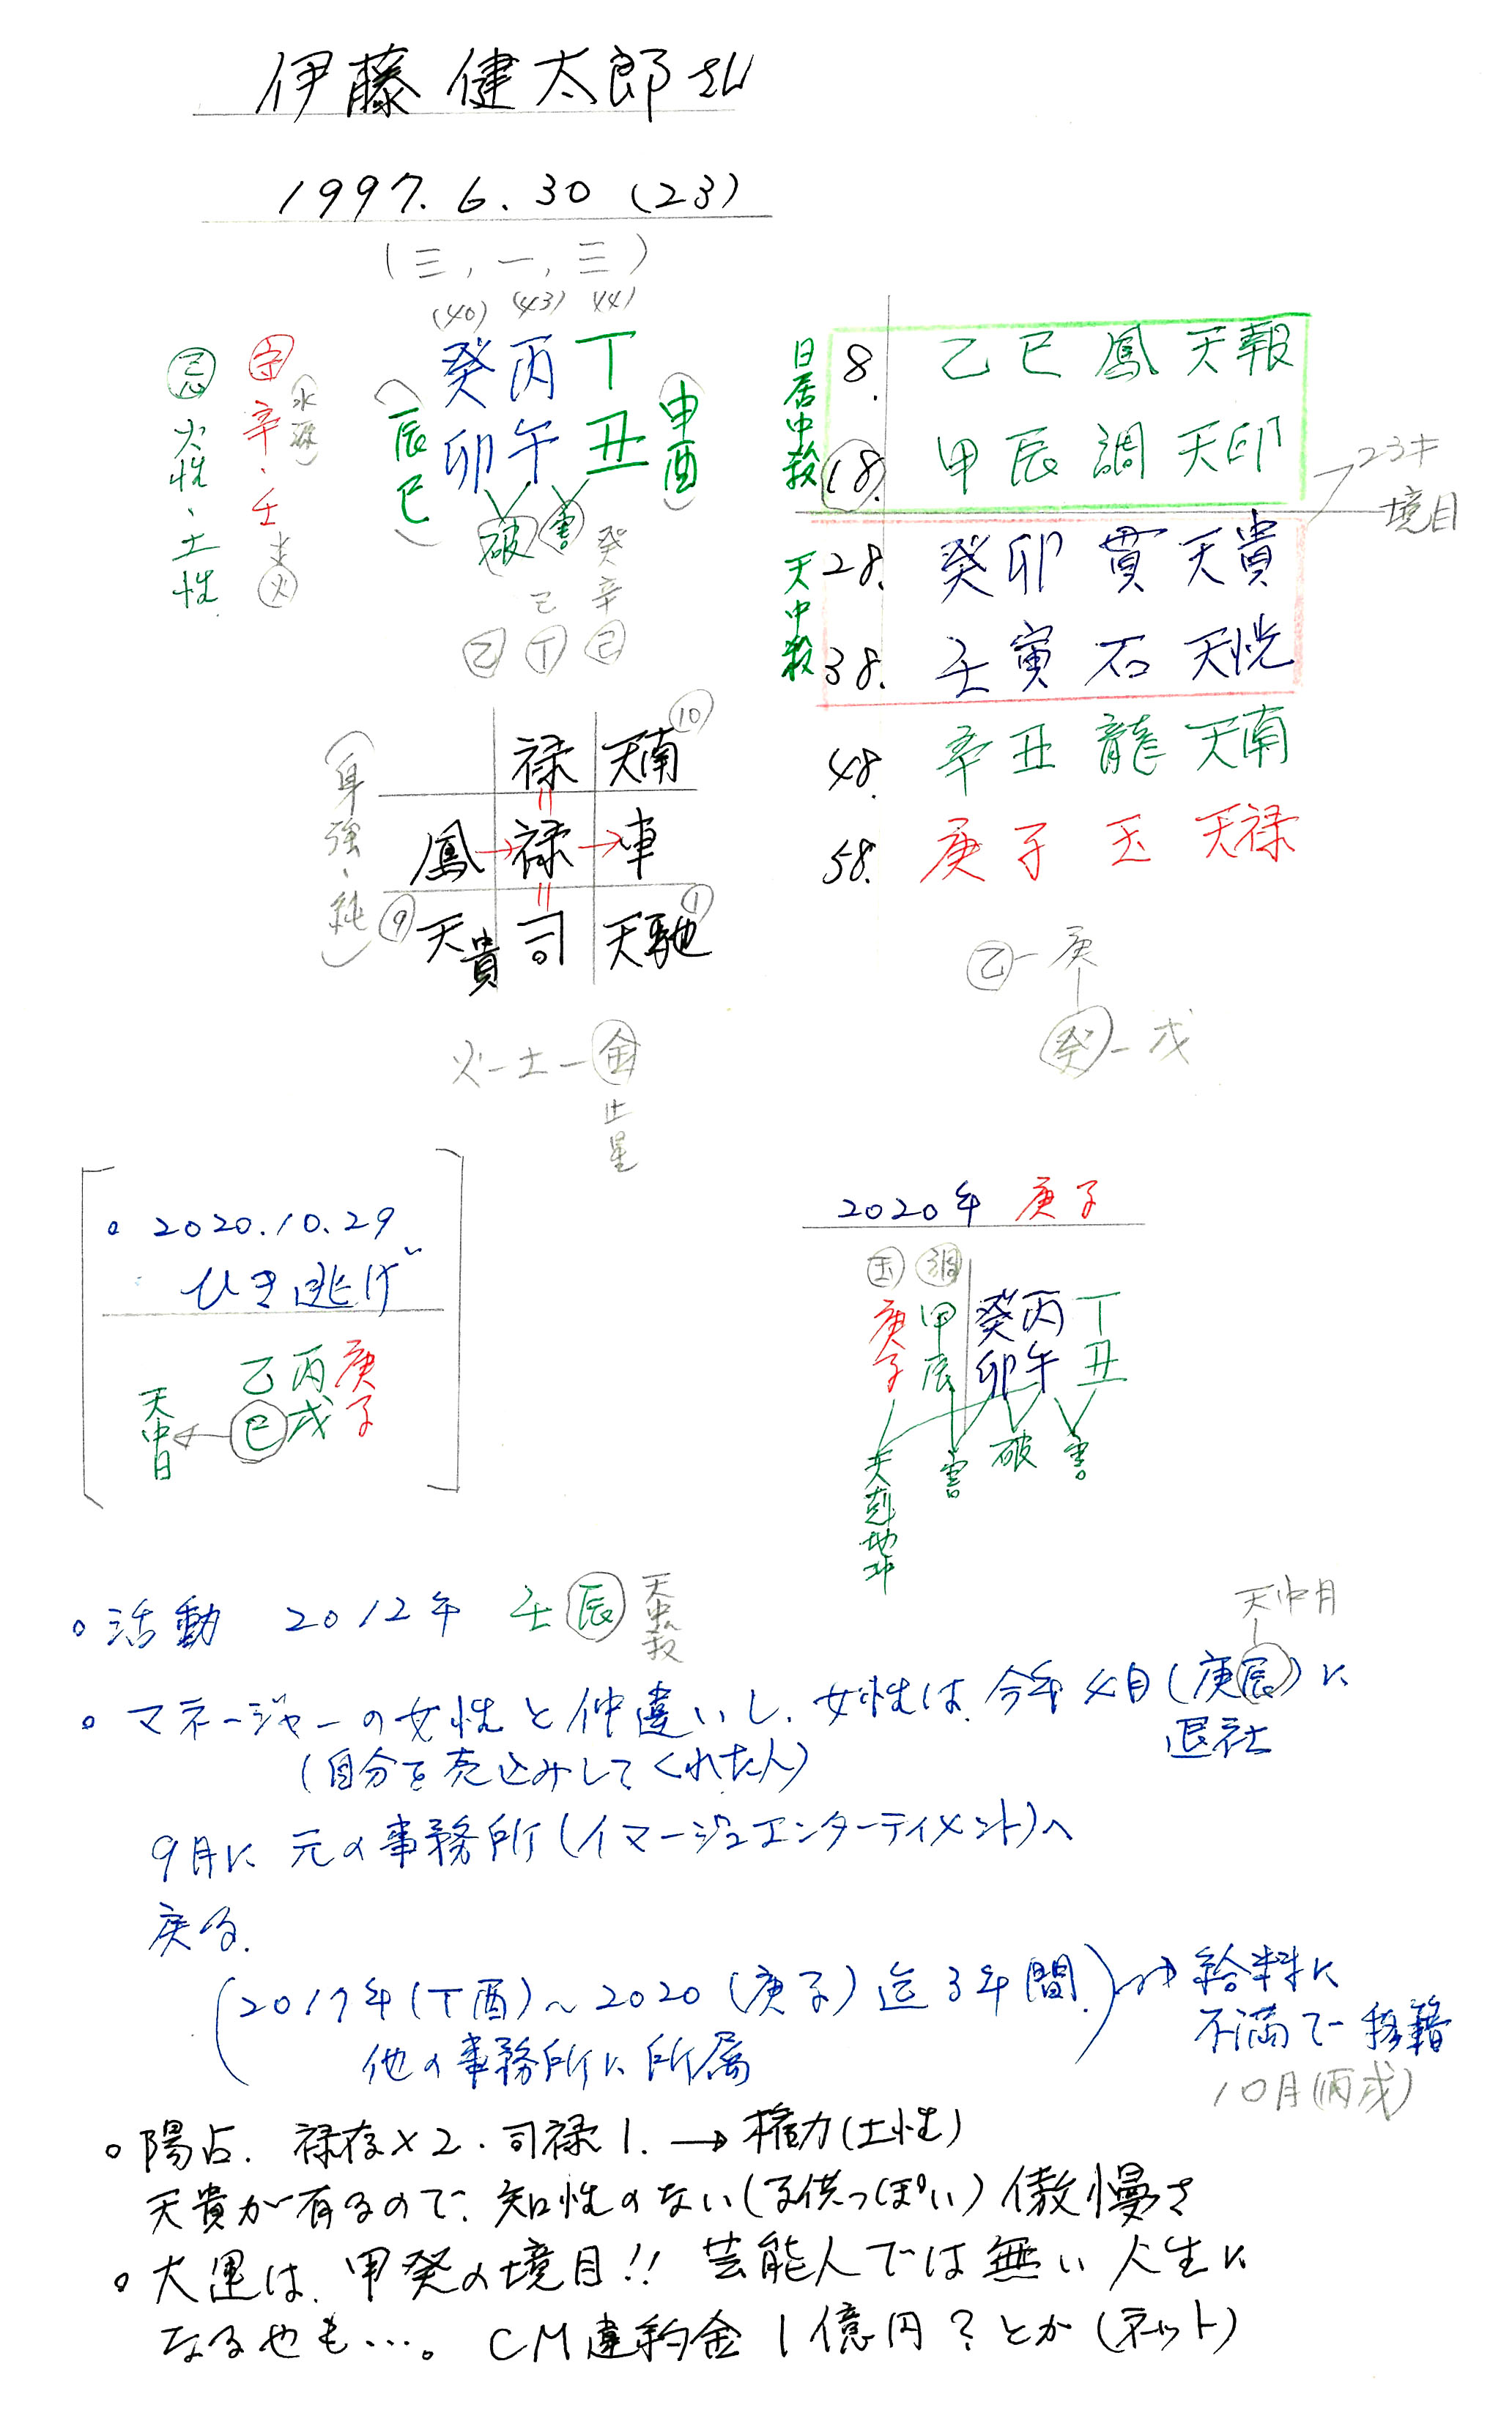 伊藤健太郎さん
1997.6.30(23)
(三,一,三)
(40) (43) (44)
癸丙丁
卯午丑
(辰巳)
(申酉)
破 害
己 辛 癸
乙 丁 己
忌 火性、土性
守 辛、壬
(水源)
日居中殺
8. 乙巳 鳳 天報
18. 甲辰 調 天印
23才
境目
天中殺
28. 癸卯 貫 天貴
38. 壬寅 石 天恍
48. 辛丑 龍 天南
58. 庚子 玉 天禄
(身強、純)
禄 天南 10
鳳→禄→車
9 天貴 司 天馳 1
火-土-金
止星
乙-庚
癸-戊
。2020.10.29
ひき逃げ
乙丙庚
巳戌子
天中日
2020年 庚子
玉 調
庚甲癸丙丁
子辰卯午丑
天剋地冲 害 破 害
。活動 2012年 壬辰 天中殺
天中月
。マネージャーの女性と仲違いし、女性は、今年4月(庚辰)に
退社
(自分を売込みしてくれた人)
9月に元の事務所(イマージュエンターテイメント)へ
戻る.
(2017年(丁酉)~2020(庚子)迄3年間.)→給料に
不満で移籍
他の事務所に所属
10月(丙戌)
。陽占. 禄存×2. 司禄1. →権力(土性)
天貴が有るので、知性のない(子供っぽい)傲慢さ
。大運は、甲癸の境目!! 芸能人では無い人生に
なる也も…。CM違約金1億円?とか(ネット)